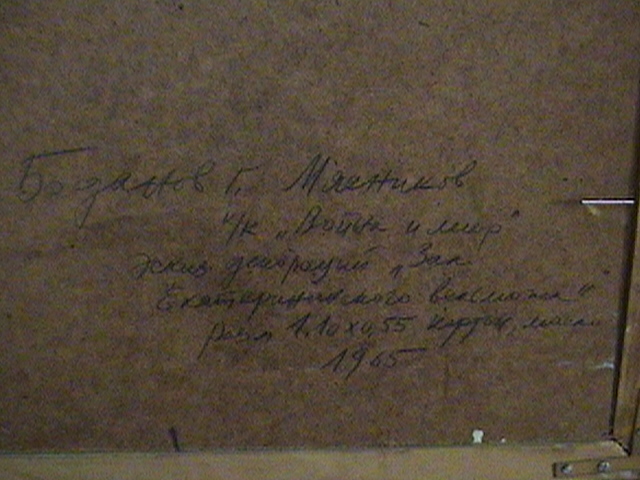 Богданов Г. Мясников
к/к „Война и мир"
Эскиз декораций „Зал
Екатерининского вельможи"
разм 1.10х0,55 картон, масло
1965